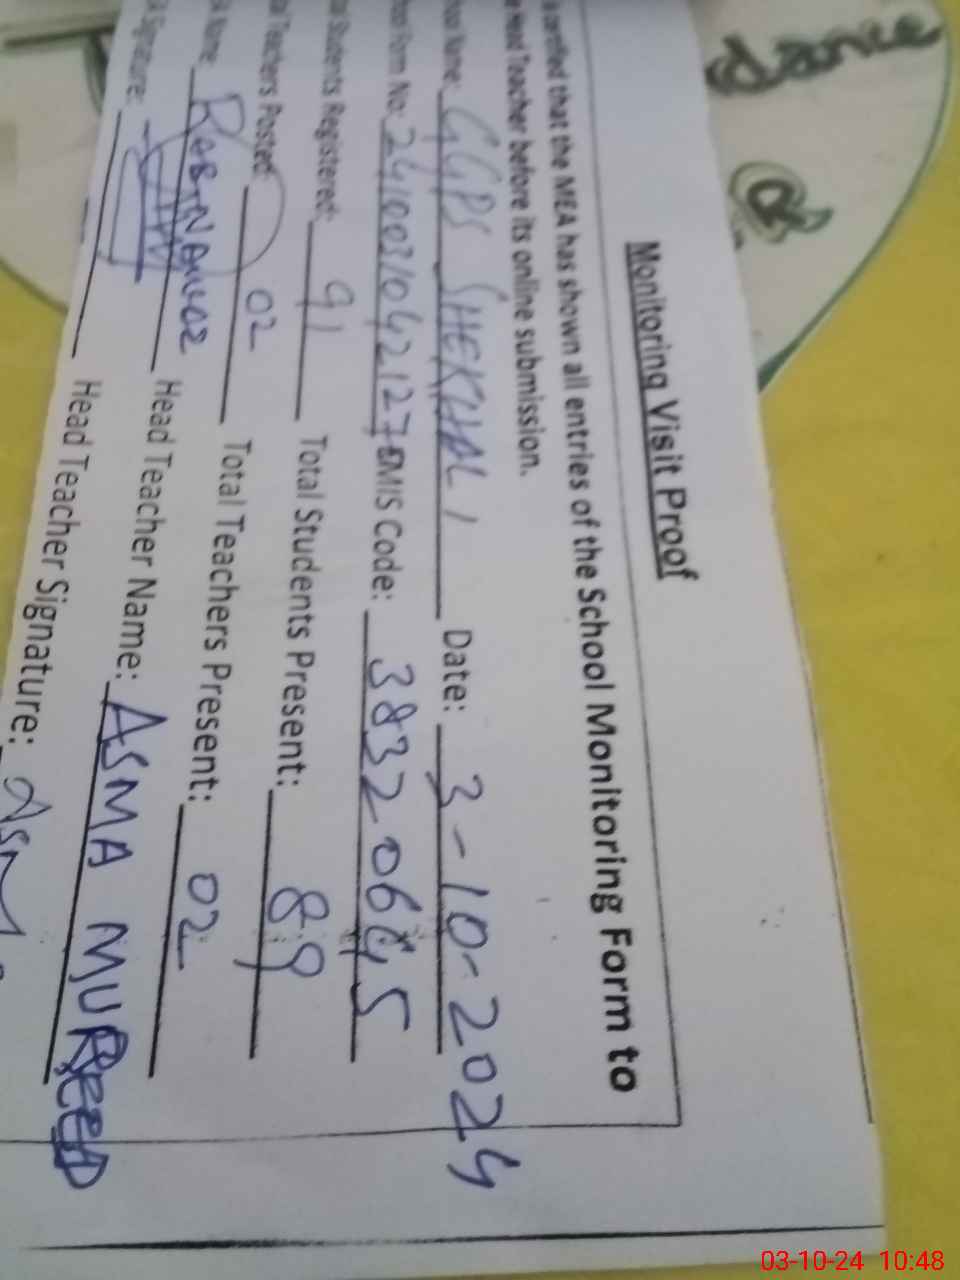 Monitoring Visit Proof
is certified that the MEA has shown all entries of the School Monitoring Form to
Head Teacher before its online submission.
Name: GGPS SHEKHAL 1 Date: 3-10-2024
Form No: 241003104212 7 EMIS Code: 38320645
Students Registered: 91 Total Students Present: 89
Teachers Posted: 02 Total Teachers Present: 02
Name Head Teacher Name: ASMA MUREED
Signature: Head Teacher Signature:
03-10-24 10:48